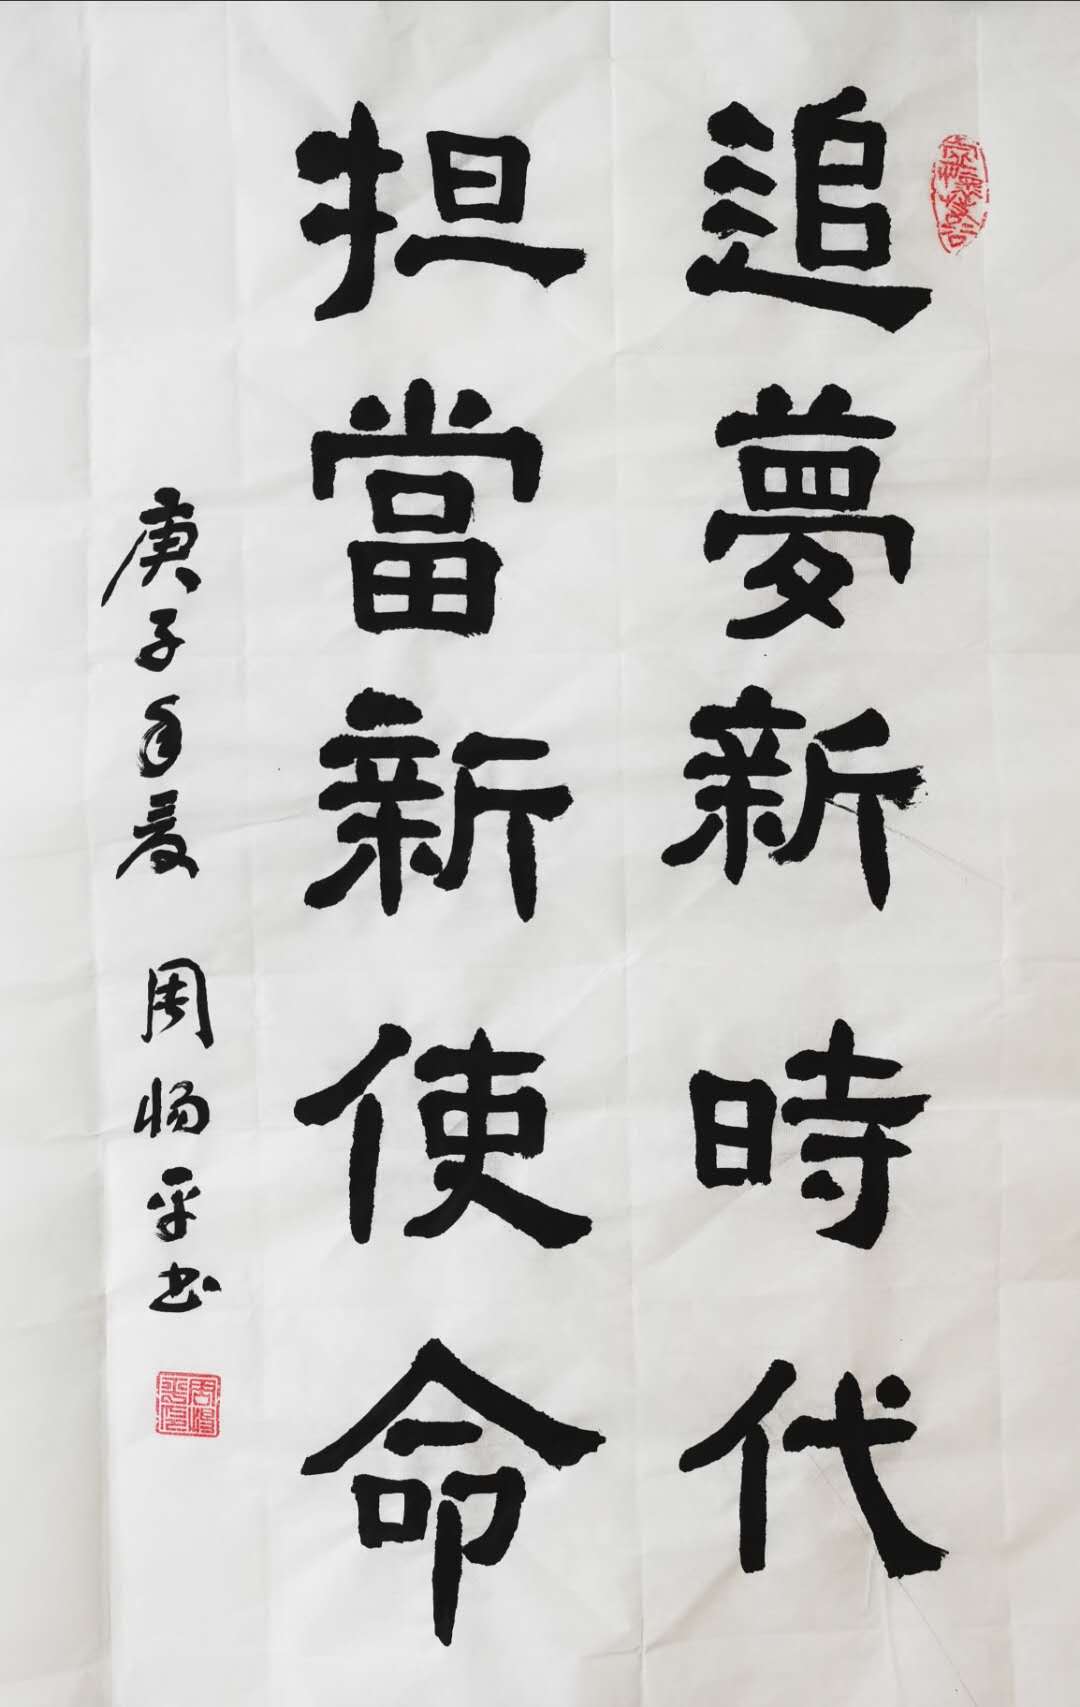 追夢新時代
担當新使命
庚子年夏 周炀平书